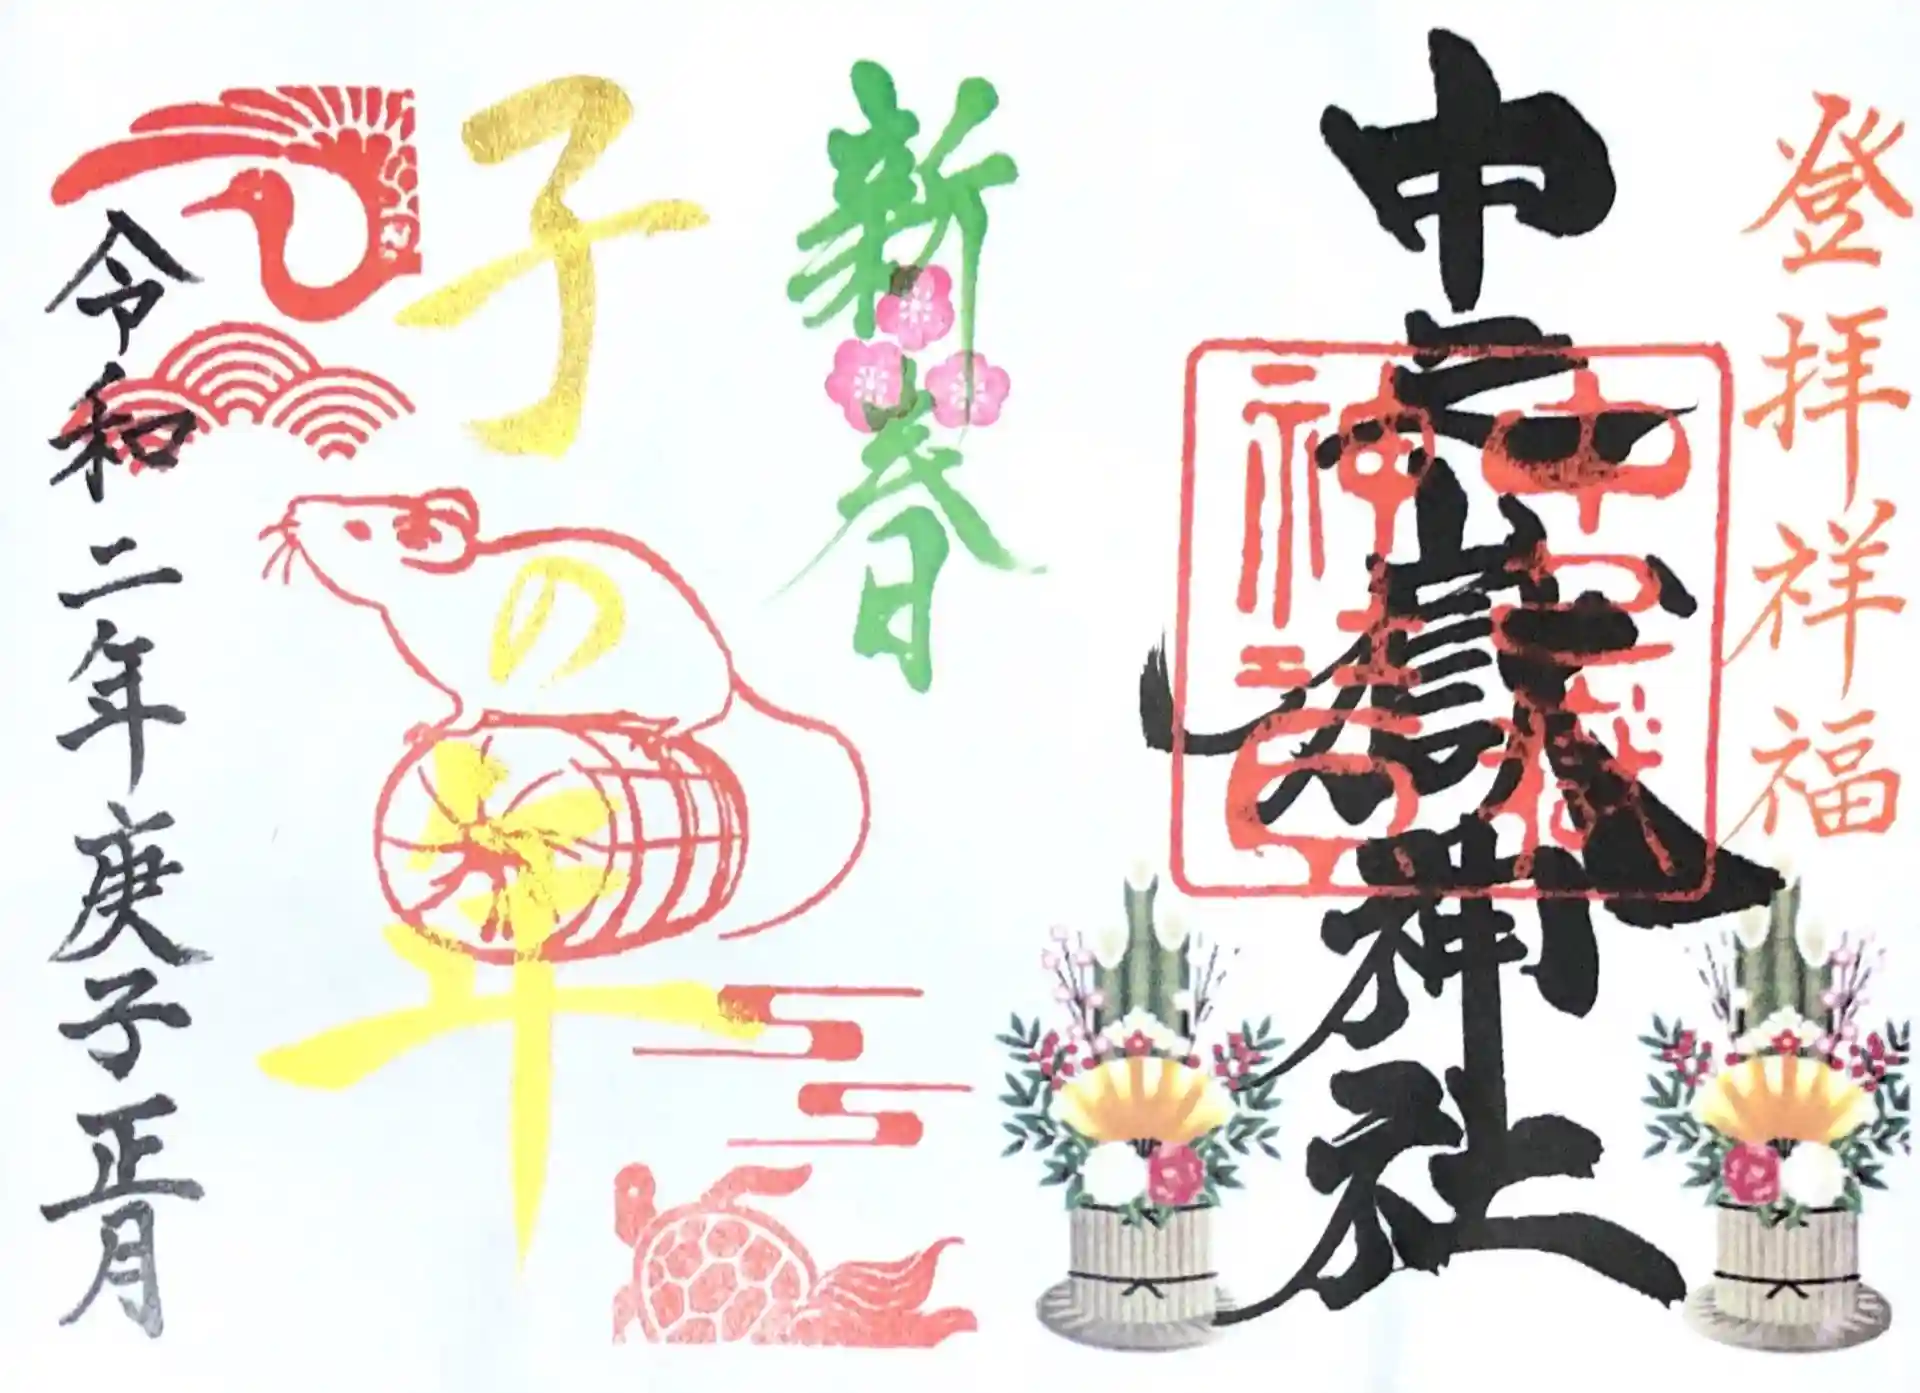 登拝祥福
中之嶽神社
新春
子の年
令和二年庚子正月